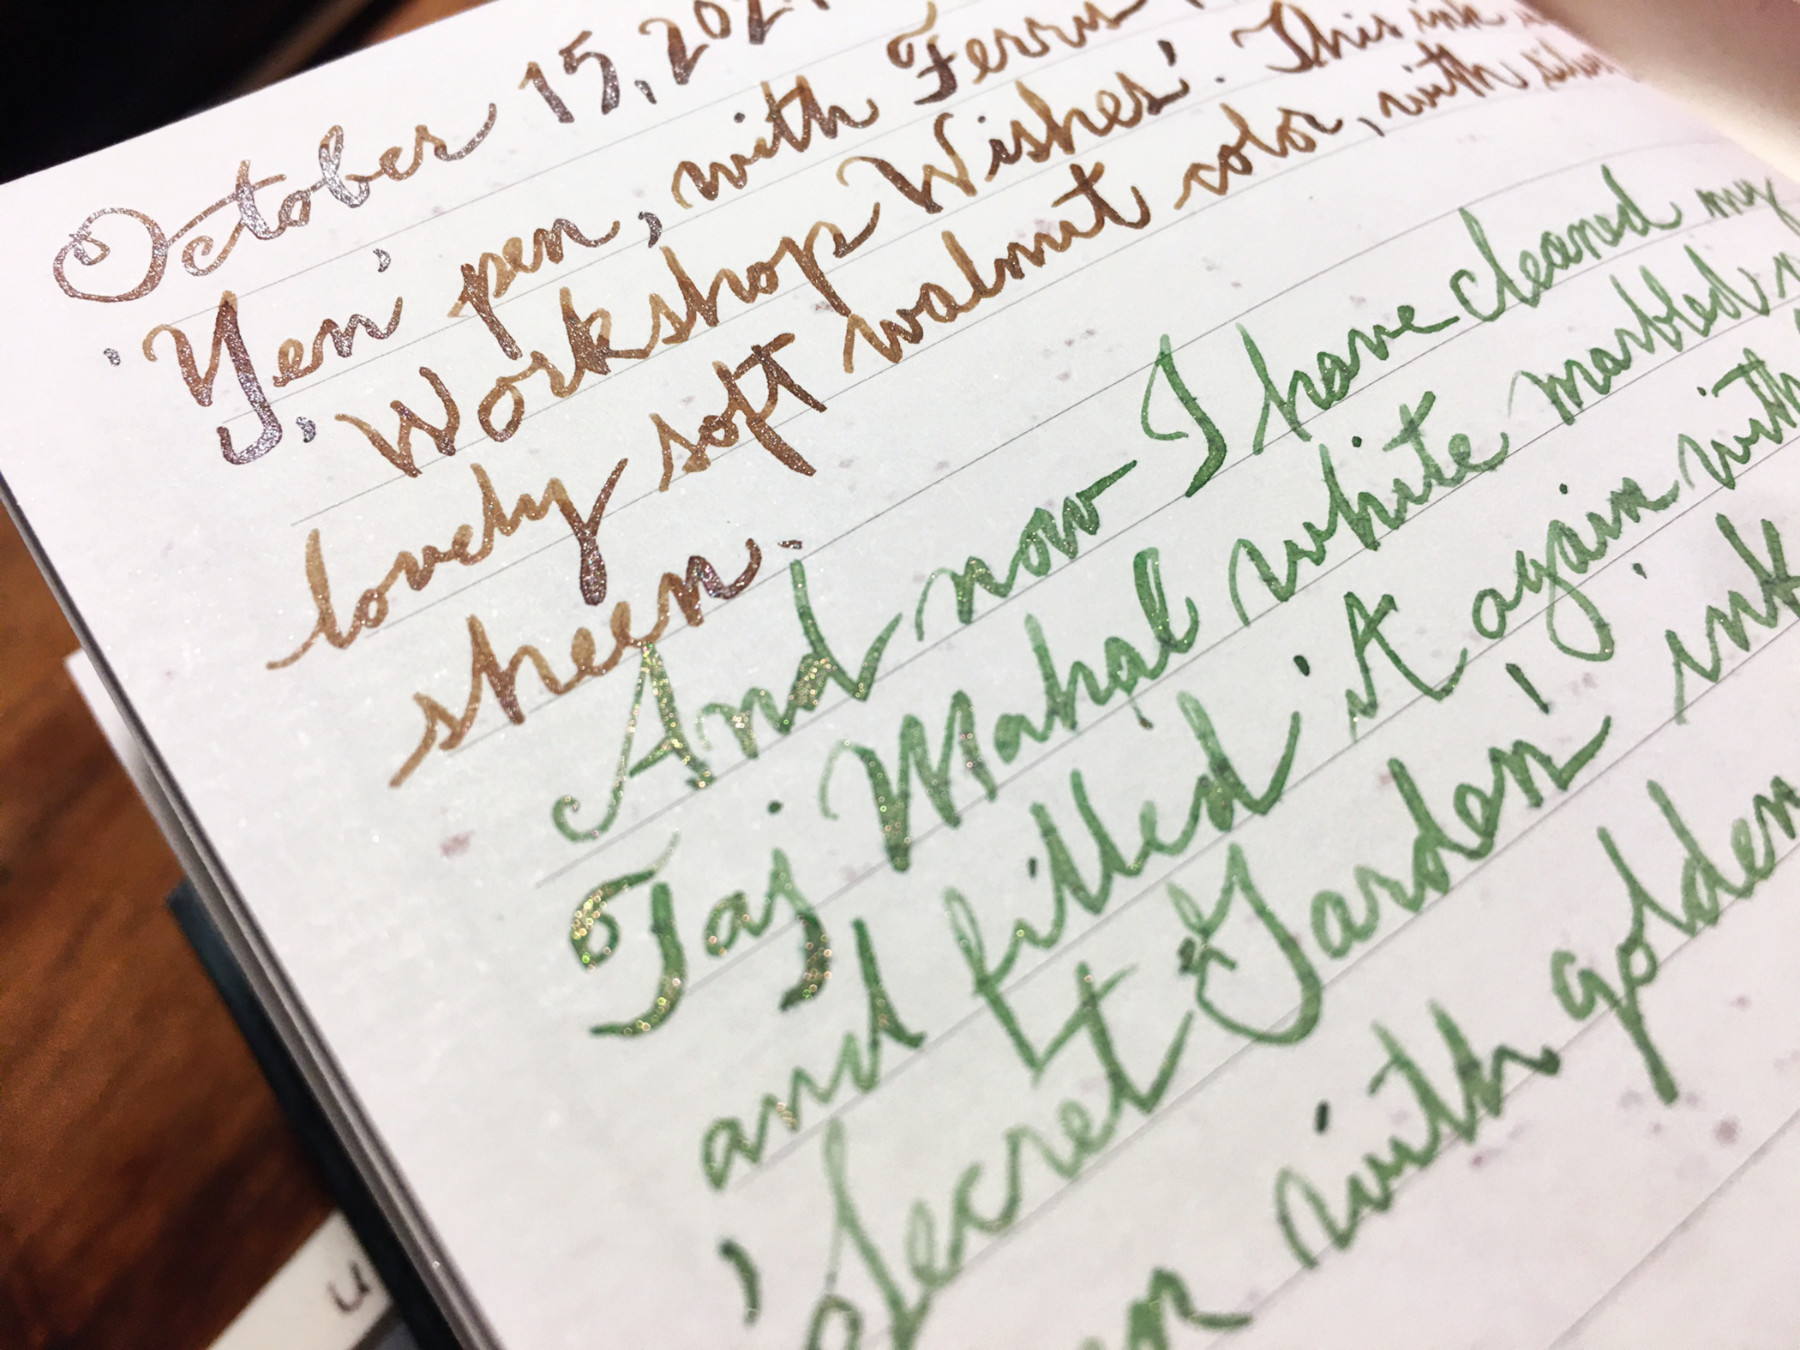 October 15, 202
'Yen' pen, with Ferris
J. Workshop Wishes'. This ink
lovely soft walnut color, with
sheen.
And now I have cleaned my
Taj Mahal white marbled
and filled it again with
'Secret Garden' ink
with golden
u